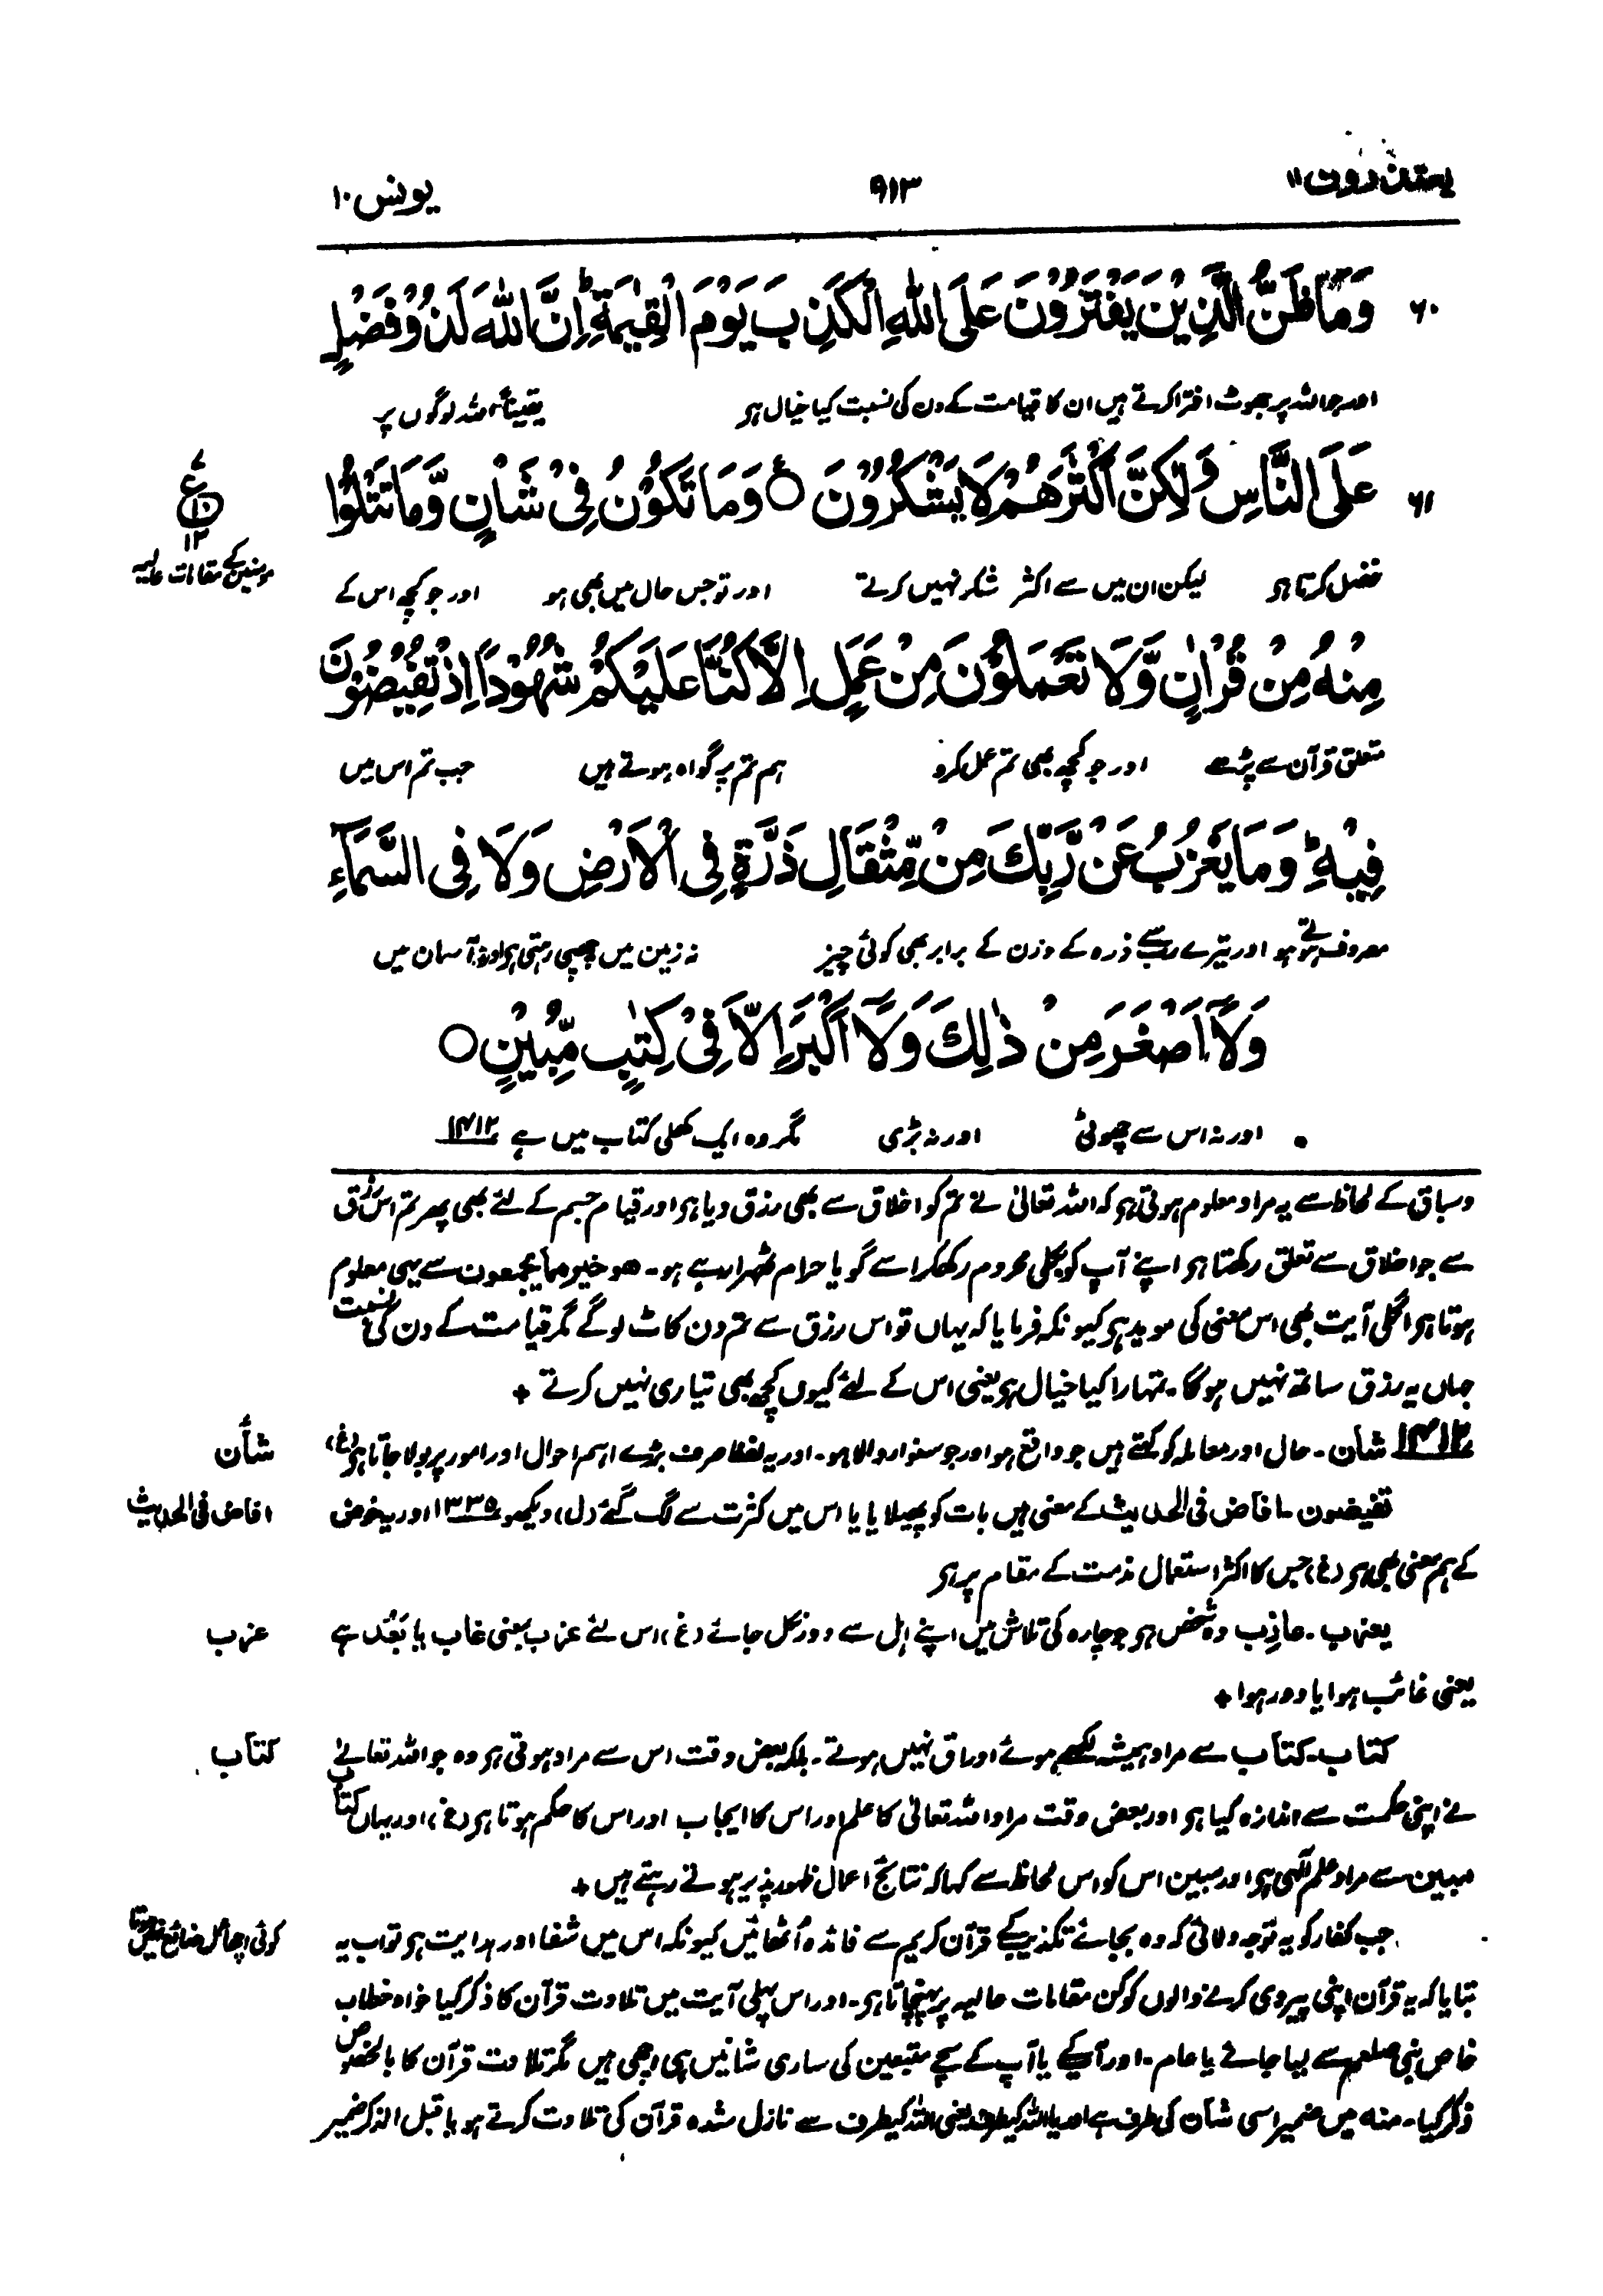 یعتذرون ۱۱
۹۱۳
یونس ۱۰
۶۰ وَمَا ظَنُّ الَّذِيْنَ يَفْتَرُوْنَ عَلَى اللّٰهِ الْكَذِبَ يَوْمَ الْقِيٰمَةِ ؕ اِنَّ اللّٰهَ لَذُوْ فَضْلٍ
اور جو اللہ پر جھوٹ افترا کرتے ہیں ان کا قیامت کے دن کی نسبت کیا خیال ہو یقیناً اللہ لوگوں پر
۶۱ عَلَى النَّاسِ وَلٰكِنَّ اَكْثَرَهُمْ لَا يَشْكُرُوْنَ ۝ وَمَا تَكُوْنُ فِيْ شَاْنٍ وَّمَا تَتْلُوْا
ع ۱۰ ۱۲
مومنین کے مقامات عالیہ
فضل کرتا ہو لیکن ان میں سے اکثر شکر نہیں کرتے اور تو جس حال میں بھی ہو اور جو کچھ اس کے
مِنْهُ مِنْ قُرْاٰنٍ وَّلَا تَعْمَلُوْنَ مِنْ عَمَلٍ اِلَّا كُنَّا عَلَيْكُمْ شُهُوْدًا اِذْ تُفِيْضُوْنَ
متعلق قرآن سے پڑھے اور جو کچھ بھی تم عمل کرو ہم تم پر گواہ ہوتے ہیں جب تم اس میں
فِيْهِ ؕ وَمَا يَعْزُبُ عَنْ رَّبِّكَ مِنْ مِّثْقَالِ ذَرَّةٍ فِي الْاَرْضِ وَلَا فِي السَّمَآءِ
مصروف ہوتے ہو اور تیرے رب سے ذرہ کے وزن کے برابر بھی کوئی چیز نہ زمین میں چھپی رہتی ہو اور نہ آسمان میں
وَلَآ اَصْغَرَ مِنْ ذٰلِكَ وَلَآ اَكْبَرَ اِلَّا فِيْ كِتٰبٍ مُّبِيْنٍ ۝
اور نہ اس سے چھوٹی اور نہ بڑی مگر وہ ایک کھلی کتاب میں ہے ۱۴۱۲
وسباق کے لحاظ سے یہ مراد معلوم ہوتی ہو کہ اللہ تعالیٰ نے تم کو اخلاق سے بھی رزق دیا ہو اور قیام جسم کے لئے بھی پھر تم اس رزق
سے جو اخلاق سے تعلق رکھتا ہو اپنے آپ کو بکلی محروم رکھکر اسے گویا حرام ٹھہرا رہے ہو۔ ھو خیر مما یجمعون سے یہی معلوم
ہوتا ہو اگلی آیت بھی اس معنی کی موید ہو کیونکہ فرمایا کہ یہاں تو اس رزق سے تم دن کاٹ لوگے مگر قیامت کے دن کی نسبت
جہاں یہ رزق ساتھ نہیں ہوگا۔ تمہارا کیا خیال ہو یعنی اس کے لئے کیوں کچھ بھی تیاری نہیں کرتے +
۱۴۱۲ شان۔ حال اور معاملہ کو کہتے ہیں جو واقع ہو اور جو سنوار والا ہو۔ اور یہ لفظ صرف بڑے اہم احوال اور امور پر بولا جاتا ہو (غ)
شأن
تفیضون۔ افاض فی الحدیث کے معنی ہیں بات کو پھیلایا یا اس میں کثرت سے لگ گئے (ل) دیکھو ۱۳۳۵ اور یہ خوض
افاض فی الحدیث
کے ہم معنی بھی ہو (غ) جس کا اکثر استعمال مذمت کے مقام پر ہو
یعزب۔ عازب وہ شخص ہو جو چارہ کی تلاش میں اپنے اہل سے دور نکل جائے (غ) اس لئے عزب بمعنی غاب یا بَعُدَ ہے
عزب
یعنی غائب ہوا یا دور ہوا +
کتاب۔ کتاب سے مراد ہمیشہ لکھے ہوئے اوراق نہیں ہوتے۔ بلکہ بعض وقت اس سے مراد ہوتی ہو وہ جو اللہ تعالیٰ
کتاب
نے اپنی حکمت سے اندازہ کیا ہو اور بعض وقت مراد اللہ تعالیٰ کا علم اور اس کا ایجاب اور اس کا حکم ہوتا ہو (غ) اور یہاں کتاب
مبین سے مراد علم الٰہی ہو اور مبین اس کو اس لحاظ سے کہا کہ نتائج اعمال ظہور پذیر ہوتے رہتے ہیں +
جب کفار کو یہ توجہ دلائی کہ وہ بجائے تکذیب کے قرآن کریم سے فائدہ اُٹھائیں کیونکہ اس میں شفا اور ہدایت ہو تو اب یہ
کوئی اچھا عمل ضائع نہیں ہوتا
بتایا کہ یہ قرآن اپنی پیروی کرنے والوں کو کن مقامات عالیہ پر پہنچاتا ہو۔ اور اس پہلی آیت میں تلاوت قرآن کا ذکر کیا خواہ خطاب
خاص نبی صلعم سے لیا جائے یا عام۔ اور آپ کے یا آپ کے سچے متبعین کی ساری شانیں ہی اچھی ہیں مگر تلاوت قرآن کا بالخصوص
ذکر کیا۔ منه میں ضمیر اسی شان کی طرف ہے اور یا اللہ کیطرف یعنی اللہ کیطرف سے نازل شدہ قرآن کی تلاوت کرتے ہو یا قبل الذکر ضمیر